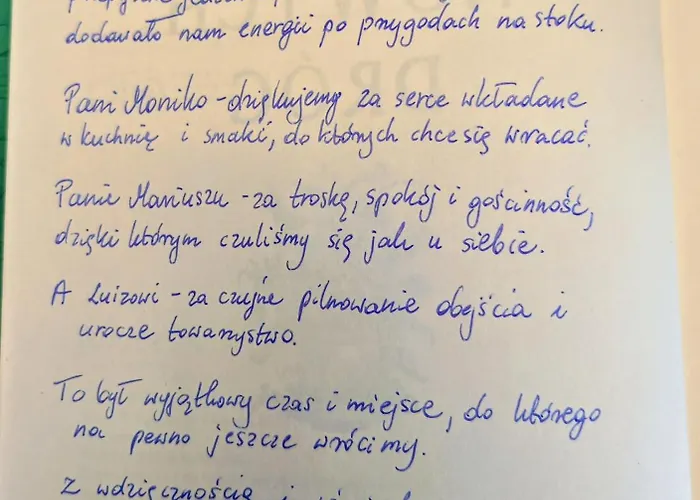 dodawało nam energii po przygodach na stoku.
Pani Moniko - dziękujemy za serce wkładane
w kuchnię i smaki, do których chce się wracać.
Panie Mariuszu - za troskę, spokój i gościnność,
dzięki którym czuliśmy się jak u siebie.
A Luizowi - za czujne pilnowanie obejścia i
urocze towarzystwo.
To był wyjątkowy czas i miejsce, do którego
na pewno jeszcze wrócimy.
Z wdzięcznością